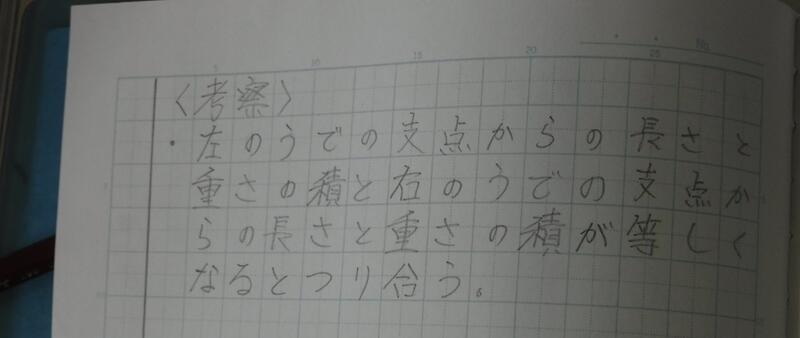 5 10 15 20 25
No.
〈考察〉
・左のうでの支点からの長さと
重さの積と右のうでの支点か
らの長さと重さの積が等しく
なるとつり合う。